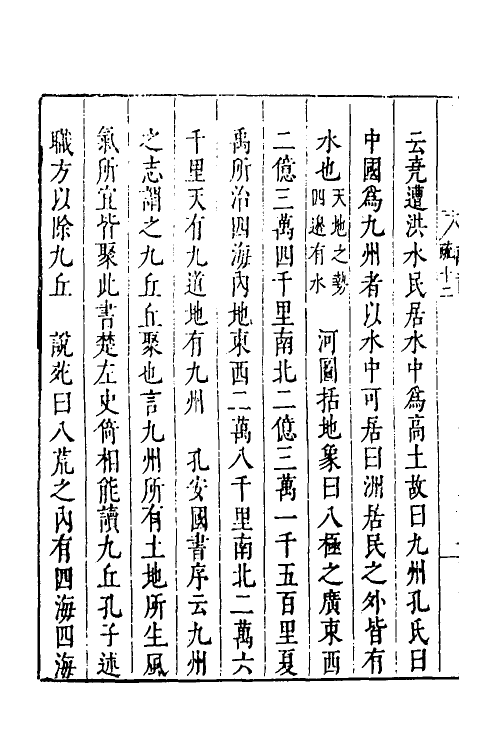 云堯遭洪水民居水中爲高土故曰九州孔氏曰
中國爲九州者以水中可居曰洲居民之外皆有
水也天地之勢四邊有水　河圖括地象曰八極之廣東西
二億三萬四千里南北二億三萬一千五百里夏
禹所治四海內地東西二萬八千里南北二萬六
千里天有九道地有九州　孔安國書序云九州
之志謂之九丘丘聚也言九州所有土地所生風
氣所宜皆聚此書楚左史倚相能讀九丘孔子述
職方以除九丘　說苑曰八荒之內有四海四海